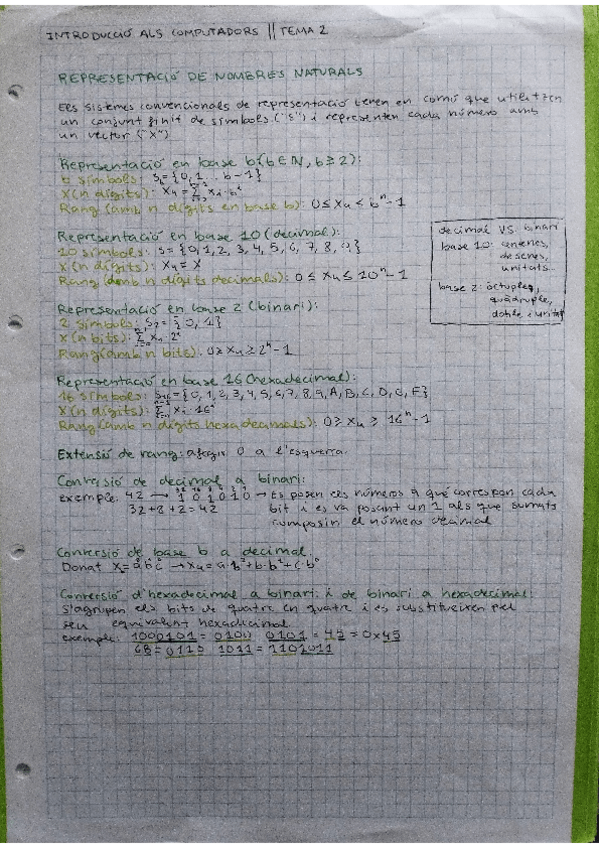 INTRODUCCIÓ ALS COMPUTADORS || TEMA 2
REPRESENTACIÓ DE NOMBRES NATURALS
Els sistemes convencionals de representació tenen en comú que utilitzen
un conjunt finit de símbols ("S") i representen cada número amb
un vector ("X")
Representació en base b (b∈N, b≥2):
b símbols: Sb={0,1...b-1}
X(n dígits): Xu=Σ xi·bⁱ
Rang (amb n dígits en base b): 0≤Xu<bⁿ-1
Representació en base 10 (decimal):
10 símbols: S={0,1,2,3,4,5,6,7,8,9}
X(n dígits): Xu=X
Rang (amb n dígits decimals): 0≤Xu≤10ⁿ-1
decimal VS. binari
base 10: centenes,
desenes,
unitats
base 2: òctuples,
quàdruples,
dobles i unitat
Representació en base 2 (binari):
2 símbols: S2={0,1}
X(n bits): Σ xi·2ⁱ
Rang (amb n bits): 0≥Xu≥2ⁿ-1
Representació en base 16 (hexadecimal):
16 símbols: S16={0,1,2,3,4,5,6,7,8,9,A,B,C,D,E,F}
X(n dígits): Σ xi·16ⁱ
Rang (amb n dígits hexadecimals): 0≥Xu≥16ⁿ-1
Extensió de rang: afegir 0 a l'esquerra.
Conversió de decimal a binari:
exemple: 42 → 101010 → Es posen els números a què correspon cada
32+8+2=42 bit i es va posant un 1 als que sumats
composin el número decimal
Conversió de base b a decimal:
Donat X=abc → Xu=a·b²+b·b¹+c·b⁰
Conversió d'hexadecimal a binari i de binari a hexadecimal:
S'agrupen els bits de quatre en quatre i es substitueixen pel
seu equivalent hexadecimal
exemple: 1000101 = 0100 0101 = 45 = 0x45
6B = 0110 1011 = 1101011